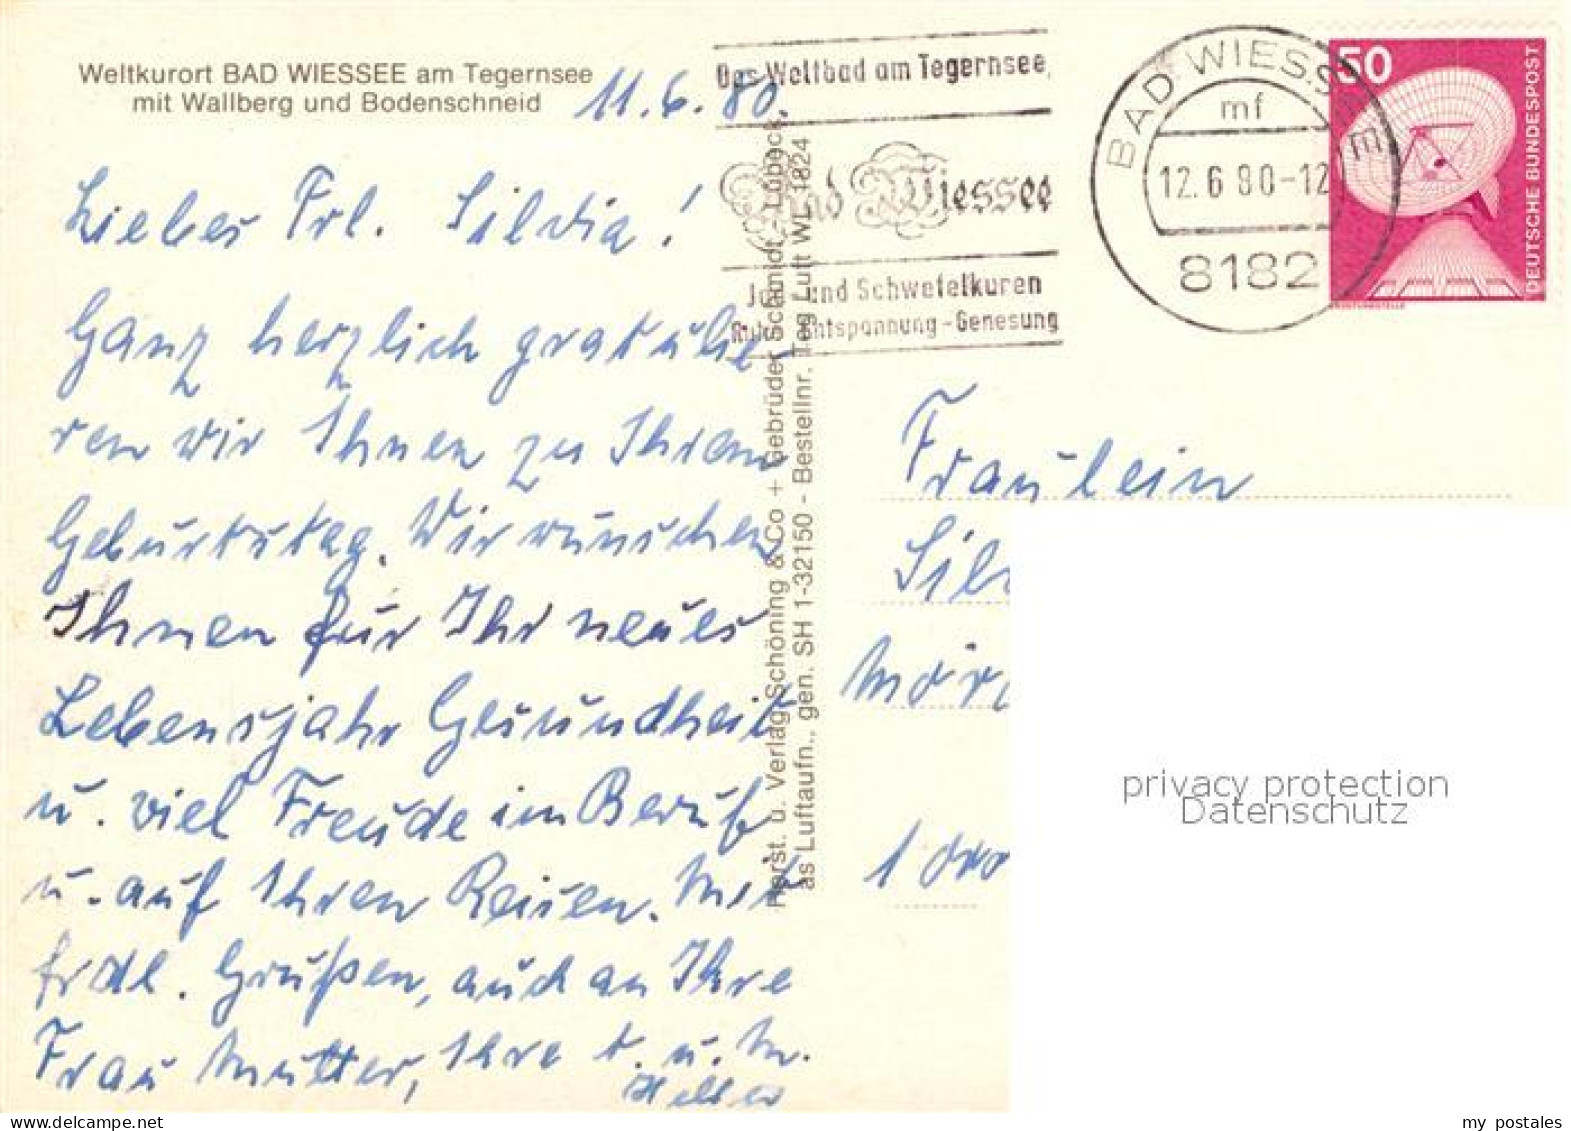 Weltkurort BAD WIESSEE am Tegernsee
mit Wallberg und Bodenschneid
11.6.80.
Liebes Frl. Silvia!
Ganz herzlich gratulie-
ren wir Ihnen zu Ihrem
Geburtstag. Wir wünschen
Ihnen für Ihr neues
Lebensjahr Gesundheit
u. viel Freude im Beruf
u. auf Ihren Reisen. Mit
frdl. Grüßen, auch an Ihre
Frau Mutter, Ihre
Das Weltbad am Tegernsee
Bad Wiessee
Jod- und Schwefelkuren
Ruhe-Entspannung-Genesung
BAD WIESSEE
mf
12.6.80-12
8182
50
DEUTSCHE BUNDESPOST
Horst. u. Verlag Schöning & Co + Gebrüder Schmidt, Lübeck
as Luftaufn., gen. SH 1-32150 - Bestellnr. Teg Luft WL 1824
Fräulein
Sil
Mör
1
privacy protection
Datenschutz
www.delcampe.net
my_postales